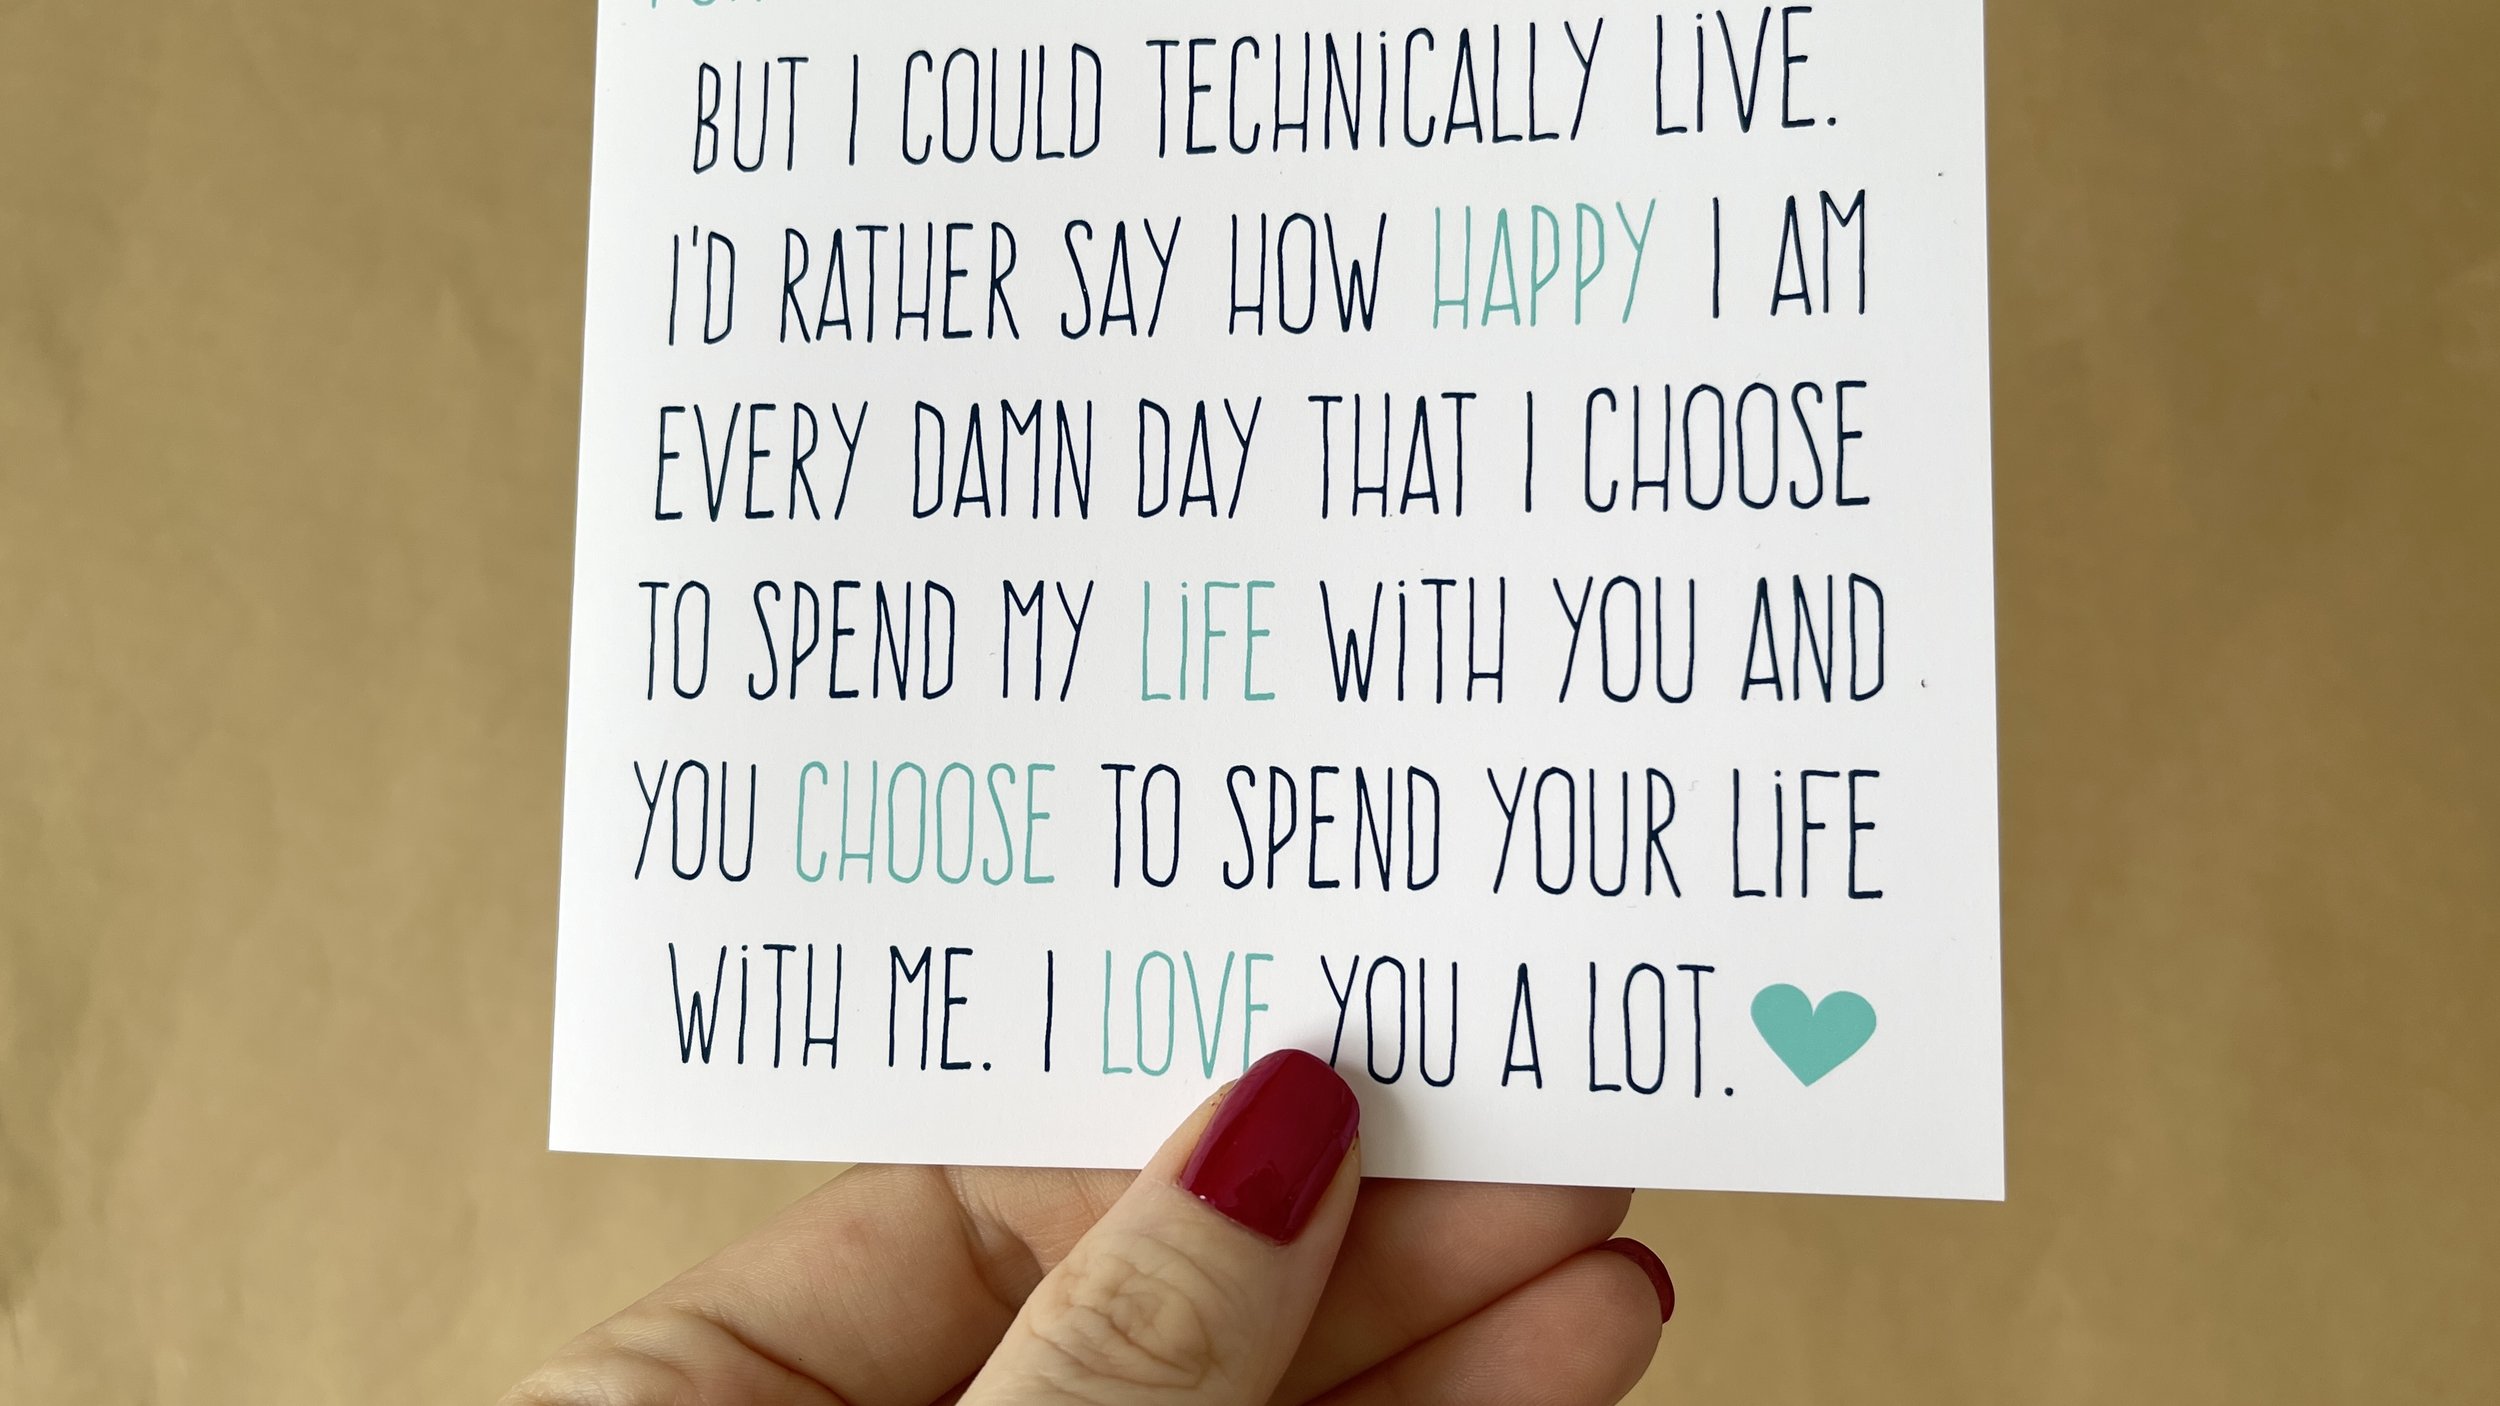 BUT I COULD TECHNICALLY LIVE.
I'D RATHER SAY HOW HAPPY I AM
EVERY DAMN DAY THAT I CHOOSE
TO SPEND MY LIFE WITH YOU AND
YOU CHOOSE TO SPEND YOUR LIFE
WITH ME. I LOVE YOU A LOT.